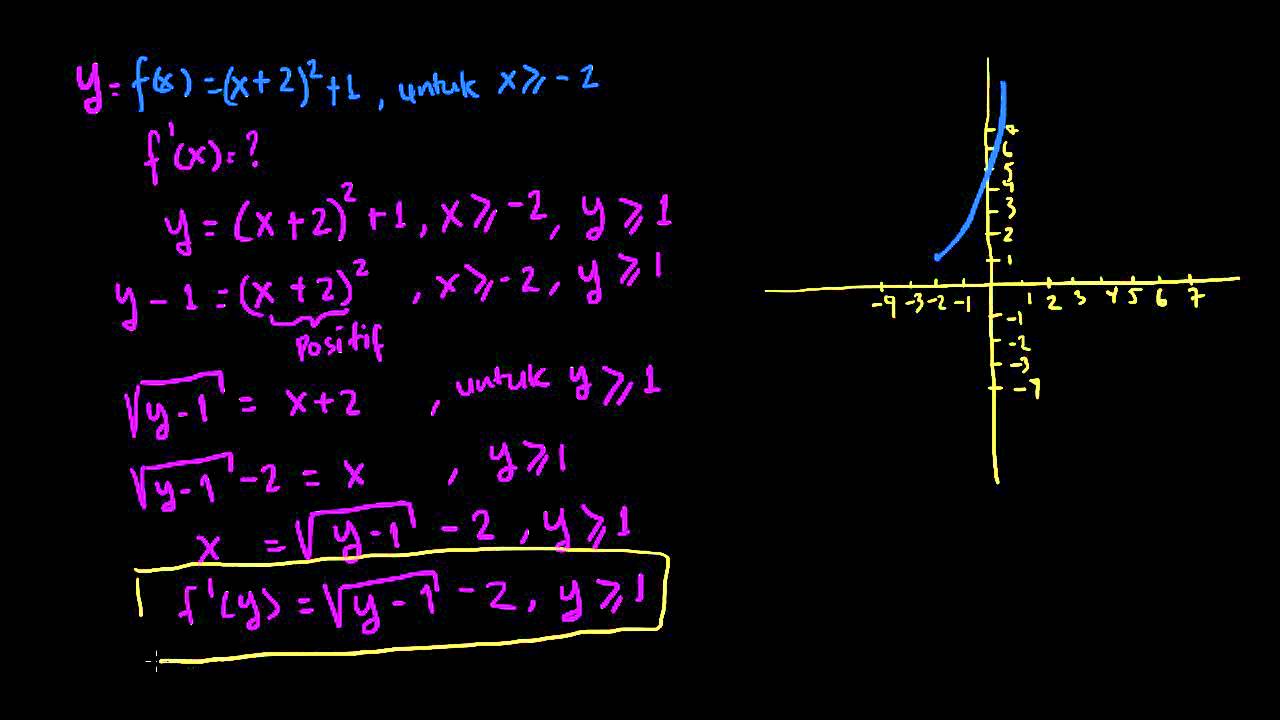 y = f(x) = (x+2)² + 1 , untuk x ⩾ -2
f'(x) = ?
y = (x+2)² + 1 , x ⩾ -2, y ⩾ 1
y - 1 = (x+2)² , x ⩾ -2, y ⩾ 1
positif
√(y-1) = x+2 , untuk y ⩾ 1
√(y-1) - 2 = x , y ⩾ 1
x = √(y-1) - 2 , y ⩾ 1
f'(y) = √(y-1) - 2, y ⩾ 1
6
5
3
2
1
-3 -2 -1 1 2 3 4 5 6 7
-1
-2
-3